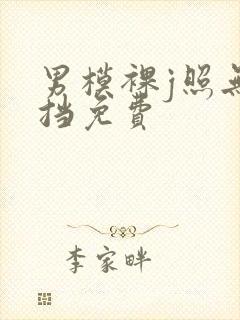 男模裸j照无
挡免费
李家畔